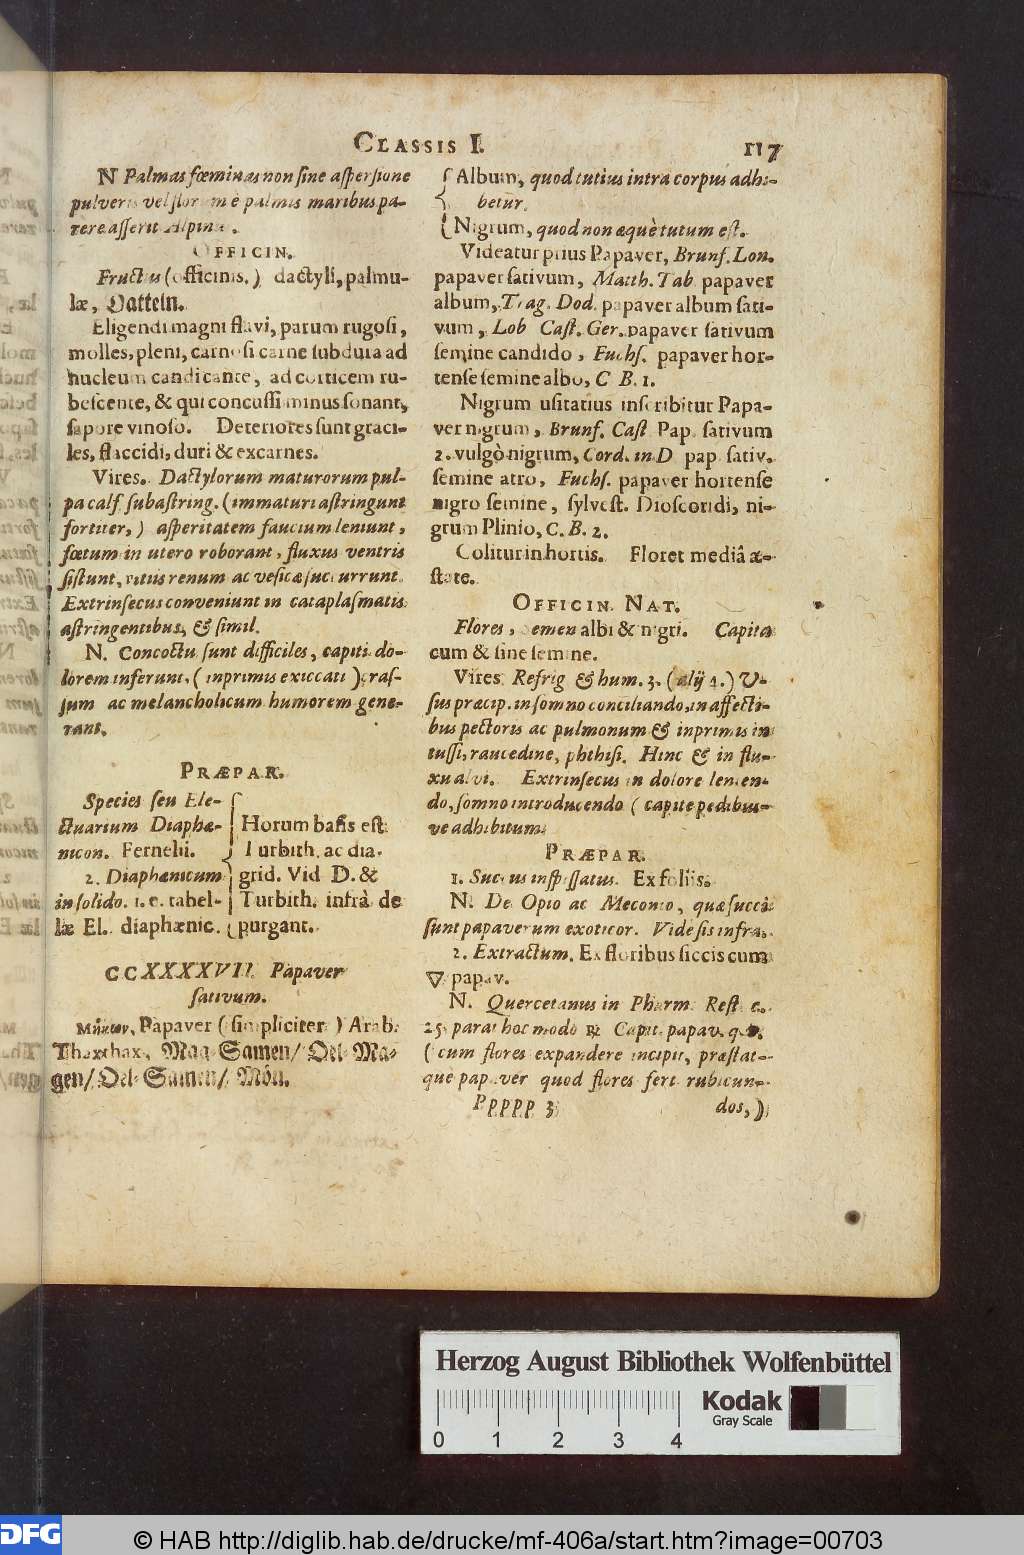 CLASSIS I. 117
N Palmas fœminas non sine aspersione
pulveris vel florum è palmis maribus pa-
rere asserit Alpin.
OFFICIN.
Fructus (officinis.) dactyli, palmu-
læ, Datteln.
Eligendi magni flavi, parum rugosi,
molles, pleni, carnosi carne subdura ad
nucleum candicante, ad corticem ru-
bescente, & qui concussi minus sonant,
sapore vinoso. Deteriores sunt graci-
les, flaccidi, duri & excarnes.
Vires. Dactylorum maturorum pul-
pa calf. subastring. (immaturi astringunt
fortiter,) asperitatem faucium leniunt,
fœtum in utero roborant, fluxus ventris
sistunt, vitiis renum ac vesicæ succurrunt.
Extrinsecus conveniunt in cataplasmatis
astringentibus, & simil.
N. Concoctu sunt difficiles, capiti do-
lorem inferunt, (inprimis exiccati) cras-
sum ac melancholicum humorem gene-
rant.
PRÆPAR.
Species seu Ele-
ctuarium Diaphœ-
nicon. Fernelii.
2. Diaphœnicum
in solido. i. e. tabel-
læ El. diaphænic.
Horum basis est
Turbith. ac dia-
grid. Vid D. &
Turbith. infrà de
purgant.
CCXXXXVII. Papaver
sativum.
Μήκων, Papaver (simpliciter) Arab.
Thaxthax, Mag-Samen/ Oel-Ma-
gen/ Oel-Samen/ Mön.
Album, quod tutius intra corpus adhi-
betur.
Nigrum, quod non æquè tutum est.
Videatur prius Papaver, Brunf. Lon.
papaver sativum, Matth. Tab papaver
album, Trag. Dod. papaver album sati-
vum, Lob Cast. Ger. papaver sativum
semine candido, Fuchs. papaver hor-
tense semine albo, C B. 1.
Nigrum usitatius inscribitur Papa-
ver nigrum, Brunf. Cast Pap. sativum
2. vulgò nigrum, Cord. in D pap sativ.
semine atro, Fuchs. papaver hortense
nigro semine, sylvest. Dioscoridi, ni-
grum Plinio, C. B. 2.
Colitur in hortis. Floret mediâ æ-
state.
OFFICIN. NAT.
Flores, semen albi & nigri. Capita
cum & sine semine.
Vires Refrig & hum. 3. (alij 4.) U-
sus præcip. in somno conciliando, in affecti-
bus pectoris ac pulmonum & inprimis in
tussi, raucedine, phthisi. Hinc & in flu-
xu alvi. Extrinsecus in dolore lenien-
do, somno introducendo (capite pedibus-
ve adhibitum.
PRÆPAR.
1. Succus inspissatus. Ex foliis.
N. De Opio ac Meconio, quæ succi
sunt papaverum exoticor. Vide sis infra.
2. Extractum. Ex floribus siccis cum
🜄 papav.
N. Quercetanus in Pharm. Rest. c.
25. parat hoc modo ℞ Capit. papav. q. v.
(cum flores expandere incipit, præstat-
que papaver quod flores fert rubicun-
Ppppp 3 dos,)
Herzog August Bibliothek Wolfenbüttel
Kodak
Gray Scale
0 1 2 3 4
DFG
© HAB http://diglib.hab.de/drucke/mf-406a/start.htm?image=00703